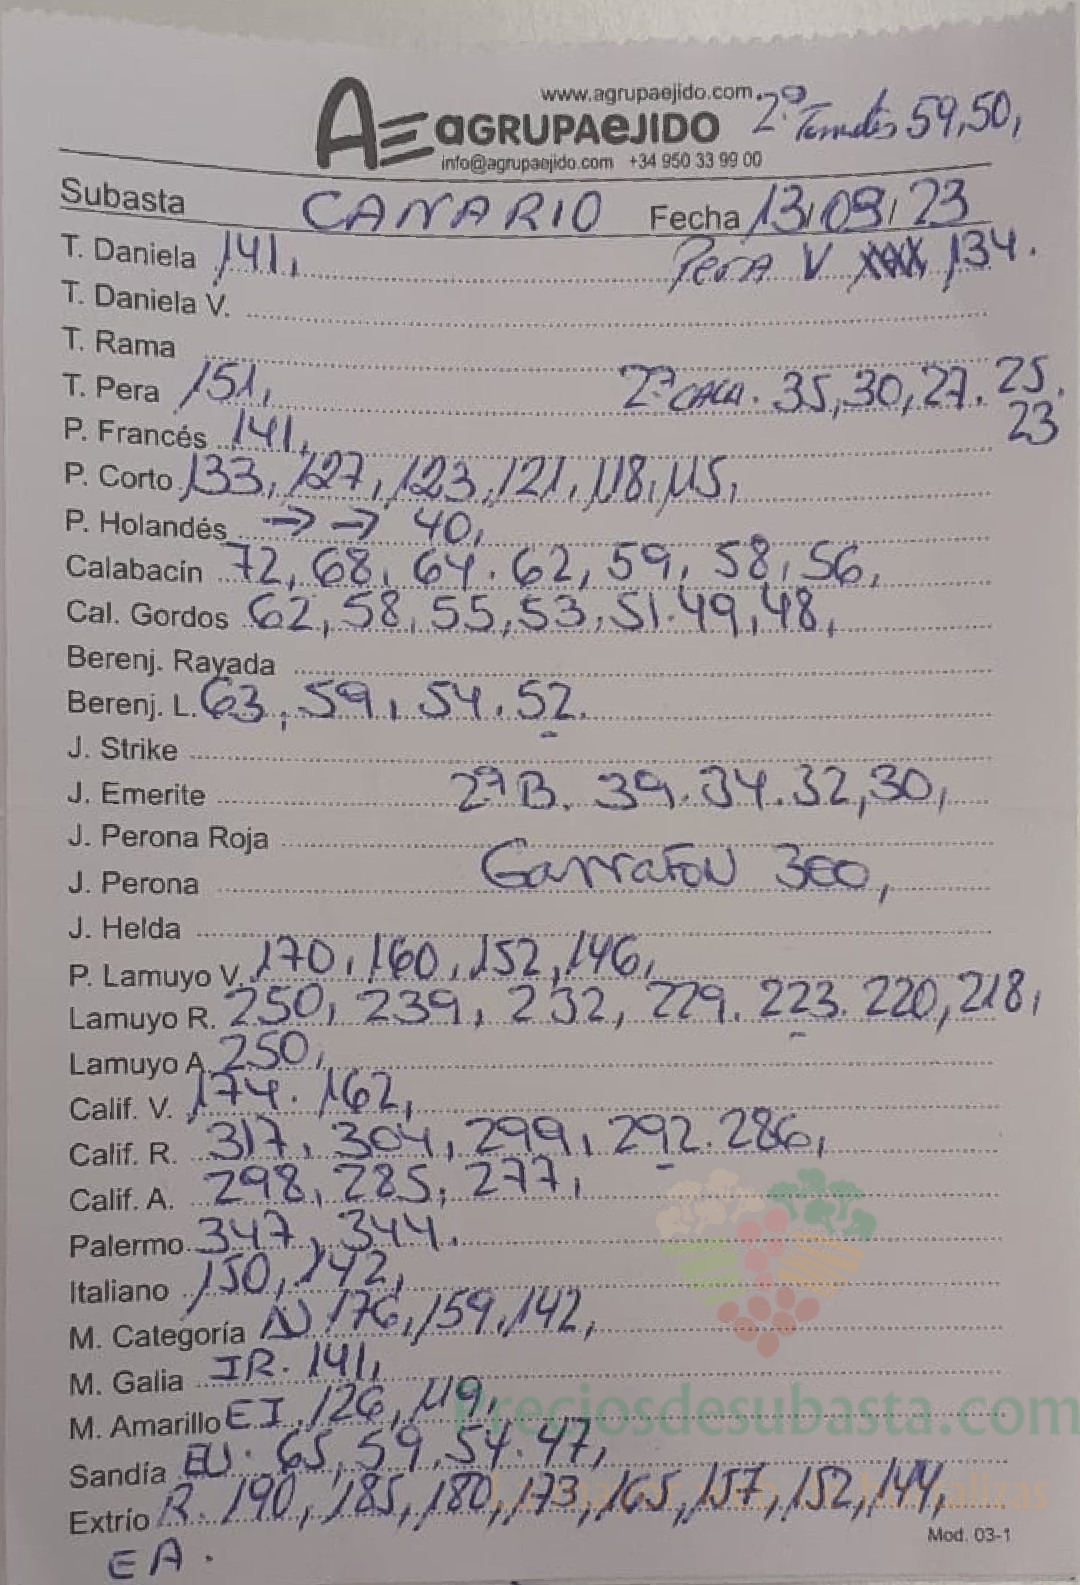 www.agrupaejido.com
2º Tomates 59,50,
AE aGRUPAeJIDO
info@agrupaejido.com +34 950 33 99 00
Subasta CANARIO Fecha 13/09/23
T. Daniela 141, Pera V 134.
T. Daniela V.
T. Rama
T. Pera 151, 2ª CALA. 35,30,27. 25.
23
P. Francés 141,
P. Corto 133, 127, 123, 121, 118, 115,
P. Holandés → → 40,
Calabacín 72, 68, 64. 62, 59, 58, 56,
Cal. Gordos 62, 58, 55, 53, 51. 49, 48,
Berenj. Rayada
Berenj. L. 63, 59, 54. 52.
J. Strike
J. Emerite 2ª B. 39. 34. 32, 30,
J. Perona Roja
J. Perona GarraFoN 300,
J. Helda
P. Lamuyo V. 170, 160, 152, 146,
Lamuyo R. 250, 239, 232, 229. 223. 220, 218,
Lamuyo A. 250,
Calif. V. 174. 162,
Calif. R. 317, 304, 299, 292. 286,
Calif. A. 298, 285, 277,
Palermo 347, 344.
Italiano 150, 142,
M. Categoría N 176, 159, 142,
M. Galia IR. 141,
M. Amarillo EI. 126, 119,
Sandía EU. 65, 59, 54. 47,
Extrío R. 190, 185, 180, 173, 165, 157, 152, 144,
EA.
Preciosdesubasta.com
Mod. 03-1